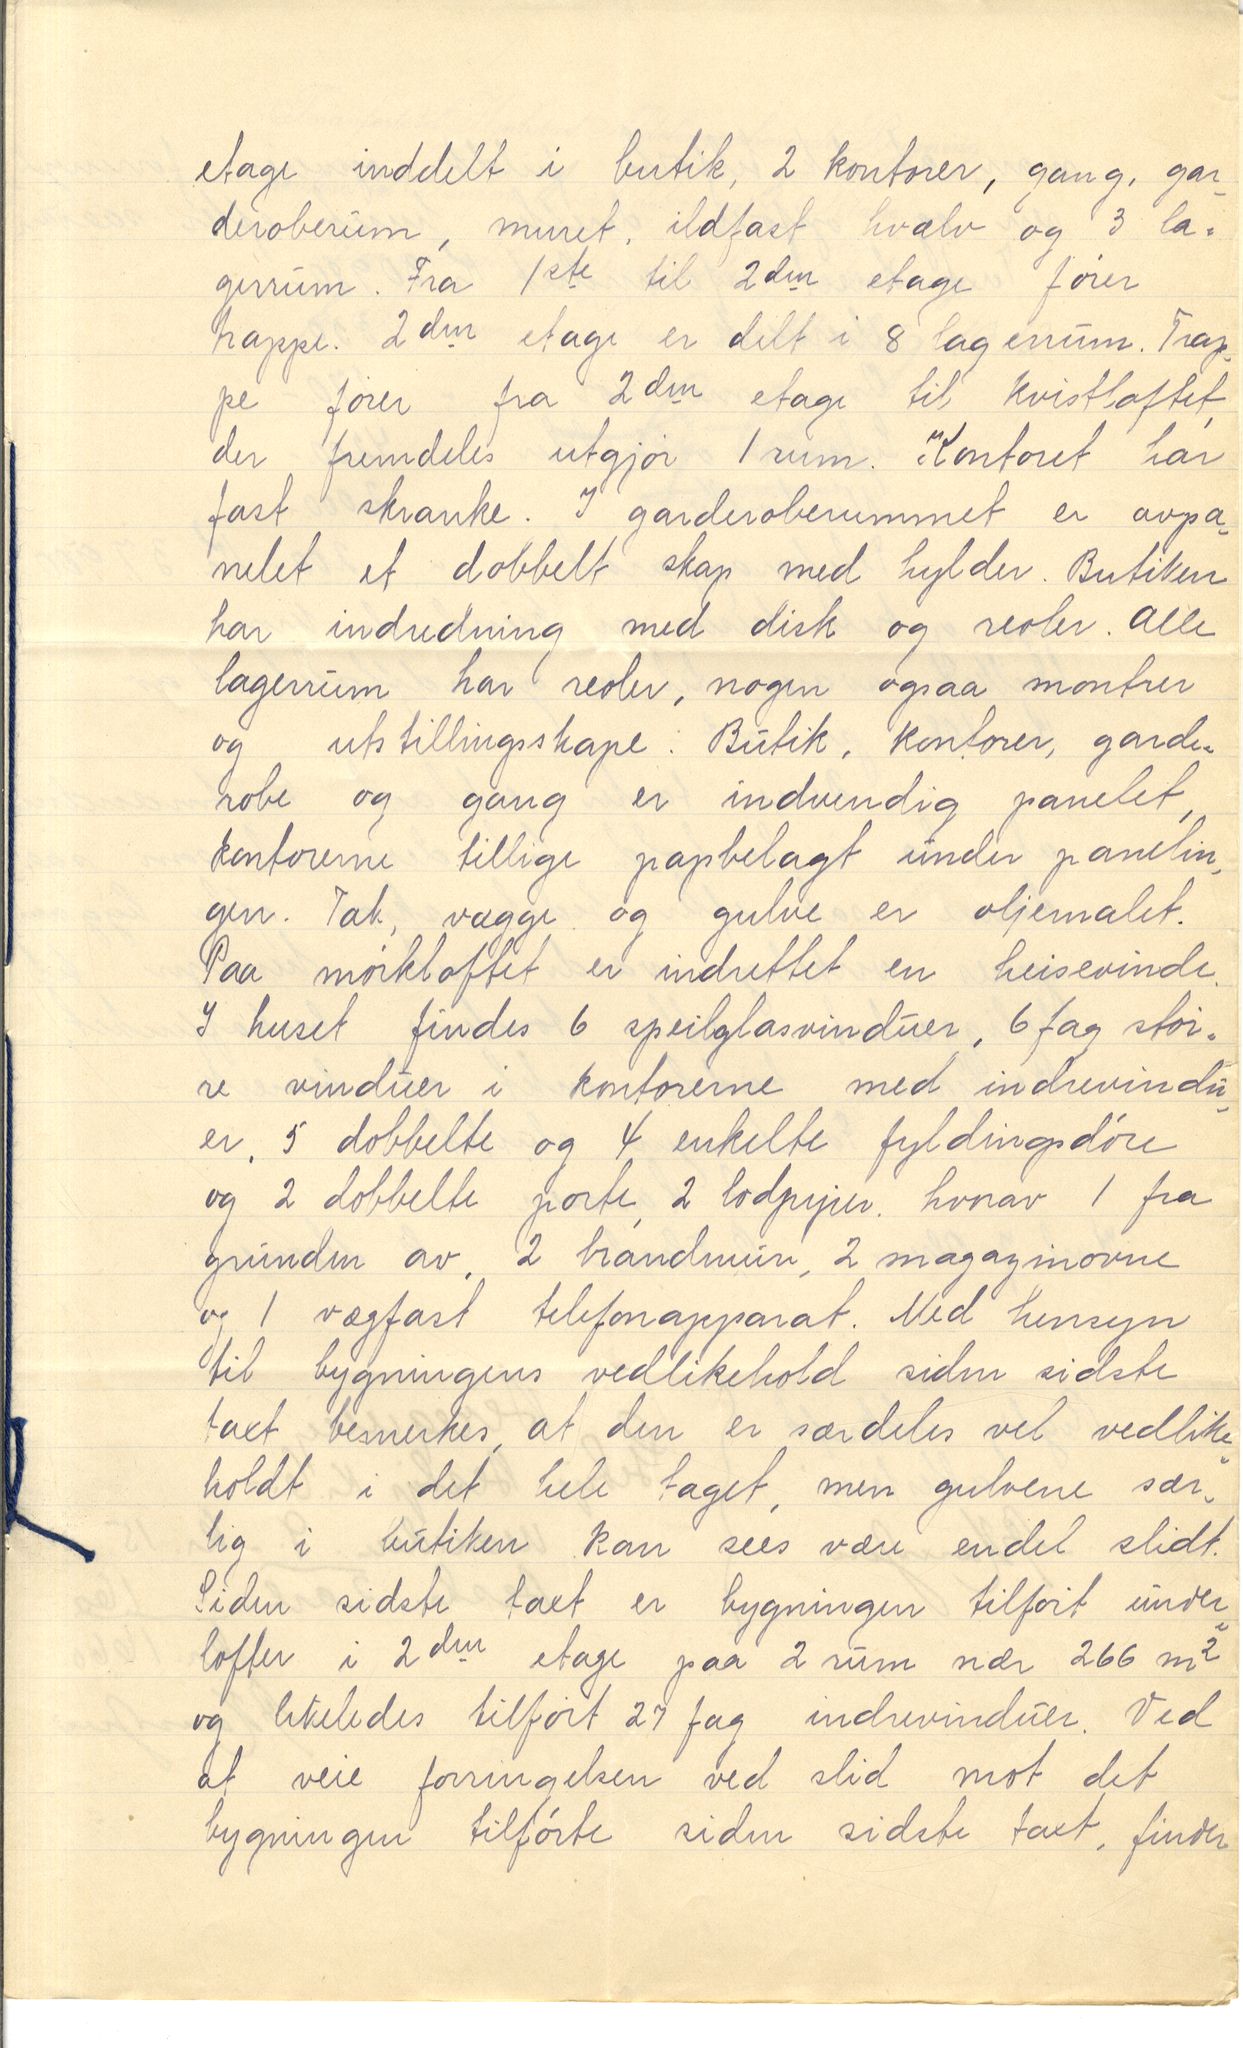 etage inddelt i butik, 2 kontorer, gang, gar-
deroberum, muret, ildfast hvælv og 3 la-
gerrum. Fra 1ste til 2den etage fører
trappe. 2den etage er delt i 8 lagerrum. Trap-
pe fører fra 2den etage til kvistloftet,
der fremdeles utgjør 1 rum. "Kontoret har
fast skranke. I garderoberummet er avpa-
nelet et dobbelt skap med hylder. Butiken
har indredning med disk og reoler. Alle
lagerrum har reoler, nogen ogsaa montrer
og utstillingsskape. Butik, kontorer, garde-
robe og gang er indvendig panelet,
kontorerne tillige papbelagt under panelin-
gen. Tak, vægge og gulve er oljemalet.
Paa mørkloftet er indrettet en heisevinde.
I huset findes 6 speilglasvinduer, 6 fag stør-
re vinduer i kontorerne med indrevindu-
er, 5 dobbelte og 4 enkelte fyldingsdøre
og 2 dobbelte porte, 2 lodpiper, hvorav 1 fra
grunden av, 2 brandmur, 2 magazinovne
og 1 vægfast telefonapparat. Med hensyn
til bygningens vedlikehold siden sidste
taxt bemerkes, at den er særdeles vel vedlike-
holdt i det hele taget, men gulvene sær-
lig i butiken kan sees være endel slidt.
Siden sidste taxt er bygningen tilført under-
lofter i 2den etage paa 2 rum nær 266 m2
og likeledes tilført 27 fag indrevinduer. Ved
at veie forringelsen ved slid mot det
bygningen tilførte siden sidste taxt, finder